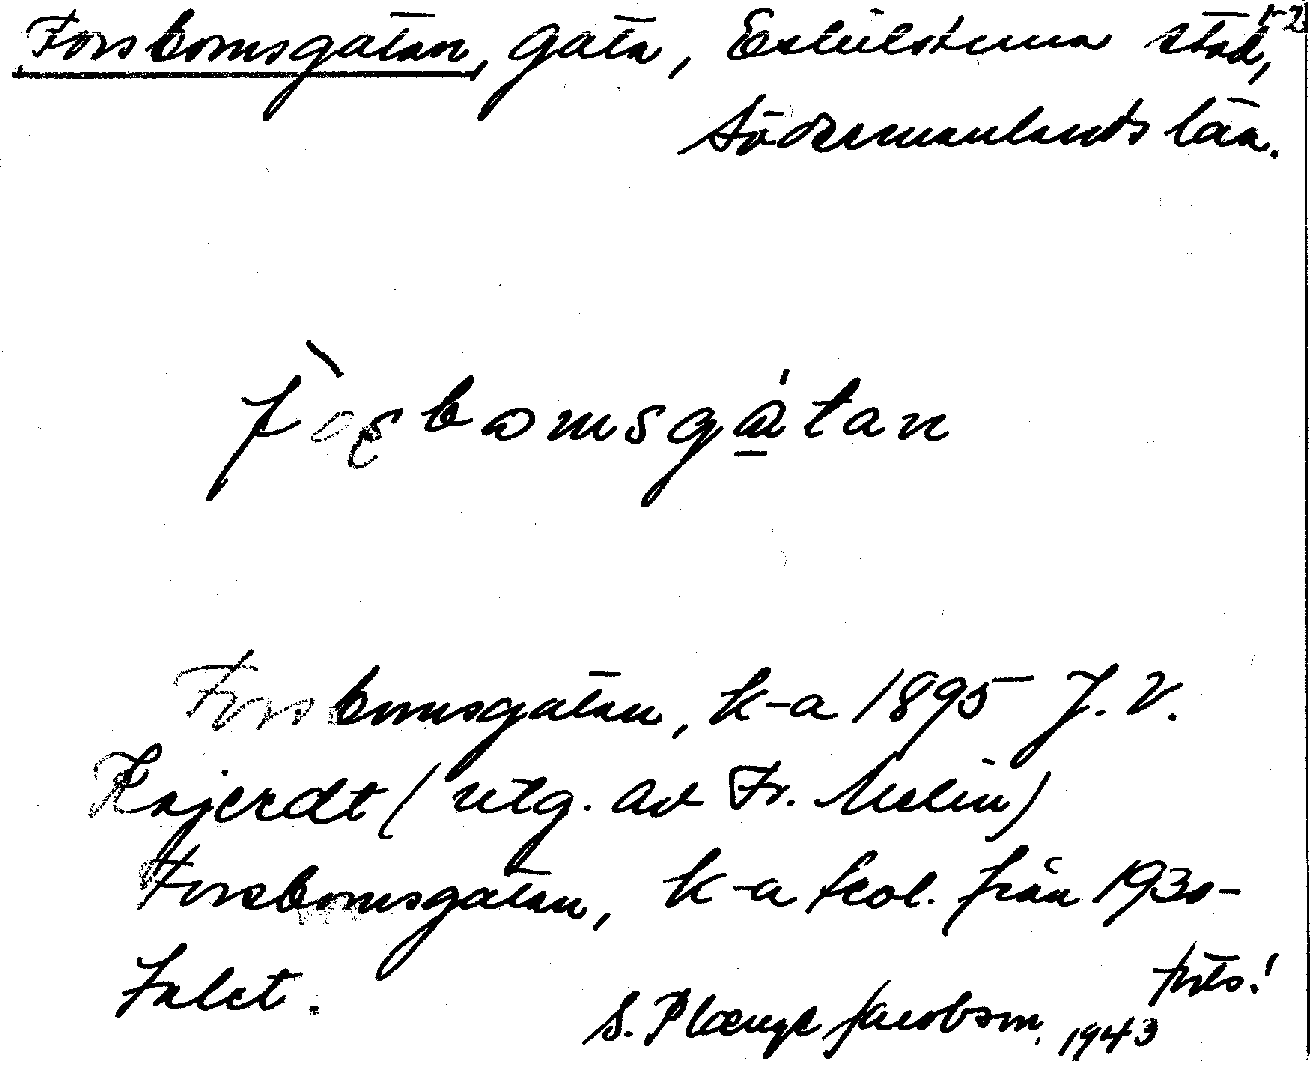 Forsbomsgatan, gata, Eskilstuna stad, 1-2
Södermanlands län.
fòʂbomsgá̲tan
Forsbomsgatan, k-a 1895 J. V.
Kajerdt (utg. av Fr. Malin)
Forsbomsgatan, k-a led. från 1930-
talet.
forts!
S. Plænge Jacobson 1943